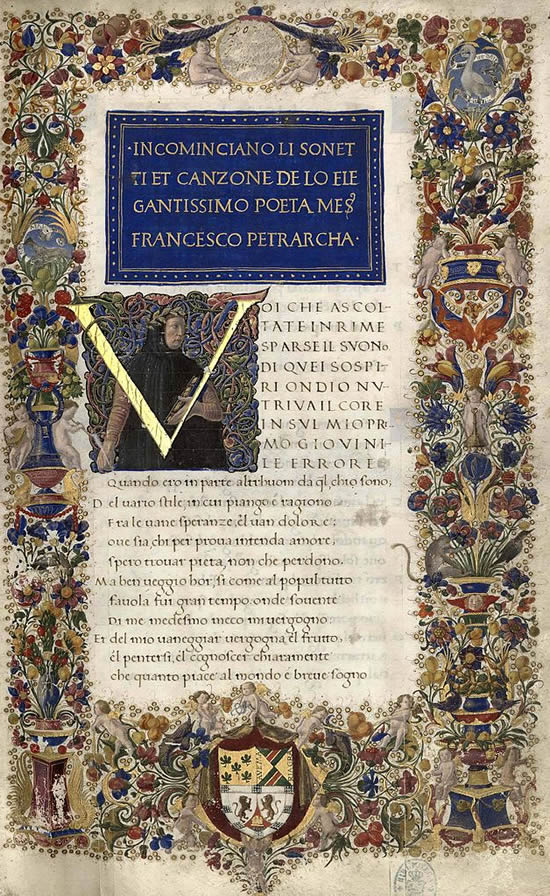 ·INCOMINCIANO LI SONET
TI ET CANZONE DE LO ELE
GANTISSIMO POETA MES
FRANCESCO PETRARCHA·
VOI CHE ASCOL-
TATE IN RIME
SPARSE IL SVONO.
DI QVEI SOSPI
RI ONDIO NV-
TRIVA IL CORE
IN SVL MIO PRI
MO GIOVINI
LE ERRORE
Quando ero in parte altrhuom da ql, chio sono,
Del uario stile, in cui piango & ragiono
Fra le uane speranze, el uan dolore:
oue sia, chi per proua intenda amore,
spero trouar pieta, non che perdono.
Ma ben ueggio hor, si come al popul tutto
fauola fui gran tempo, onde souente
Di me medesimo meco mi uergogno:
Et del mio uaneggiar uergogna, el frutto,
el pentersi, el cognoscer chiaramente
che quanto piace al mondo e breue sogno